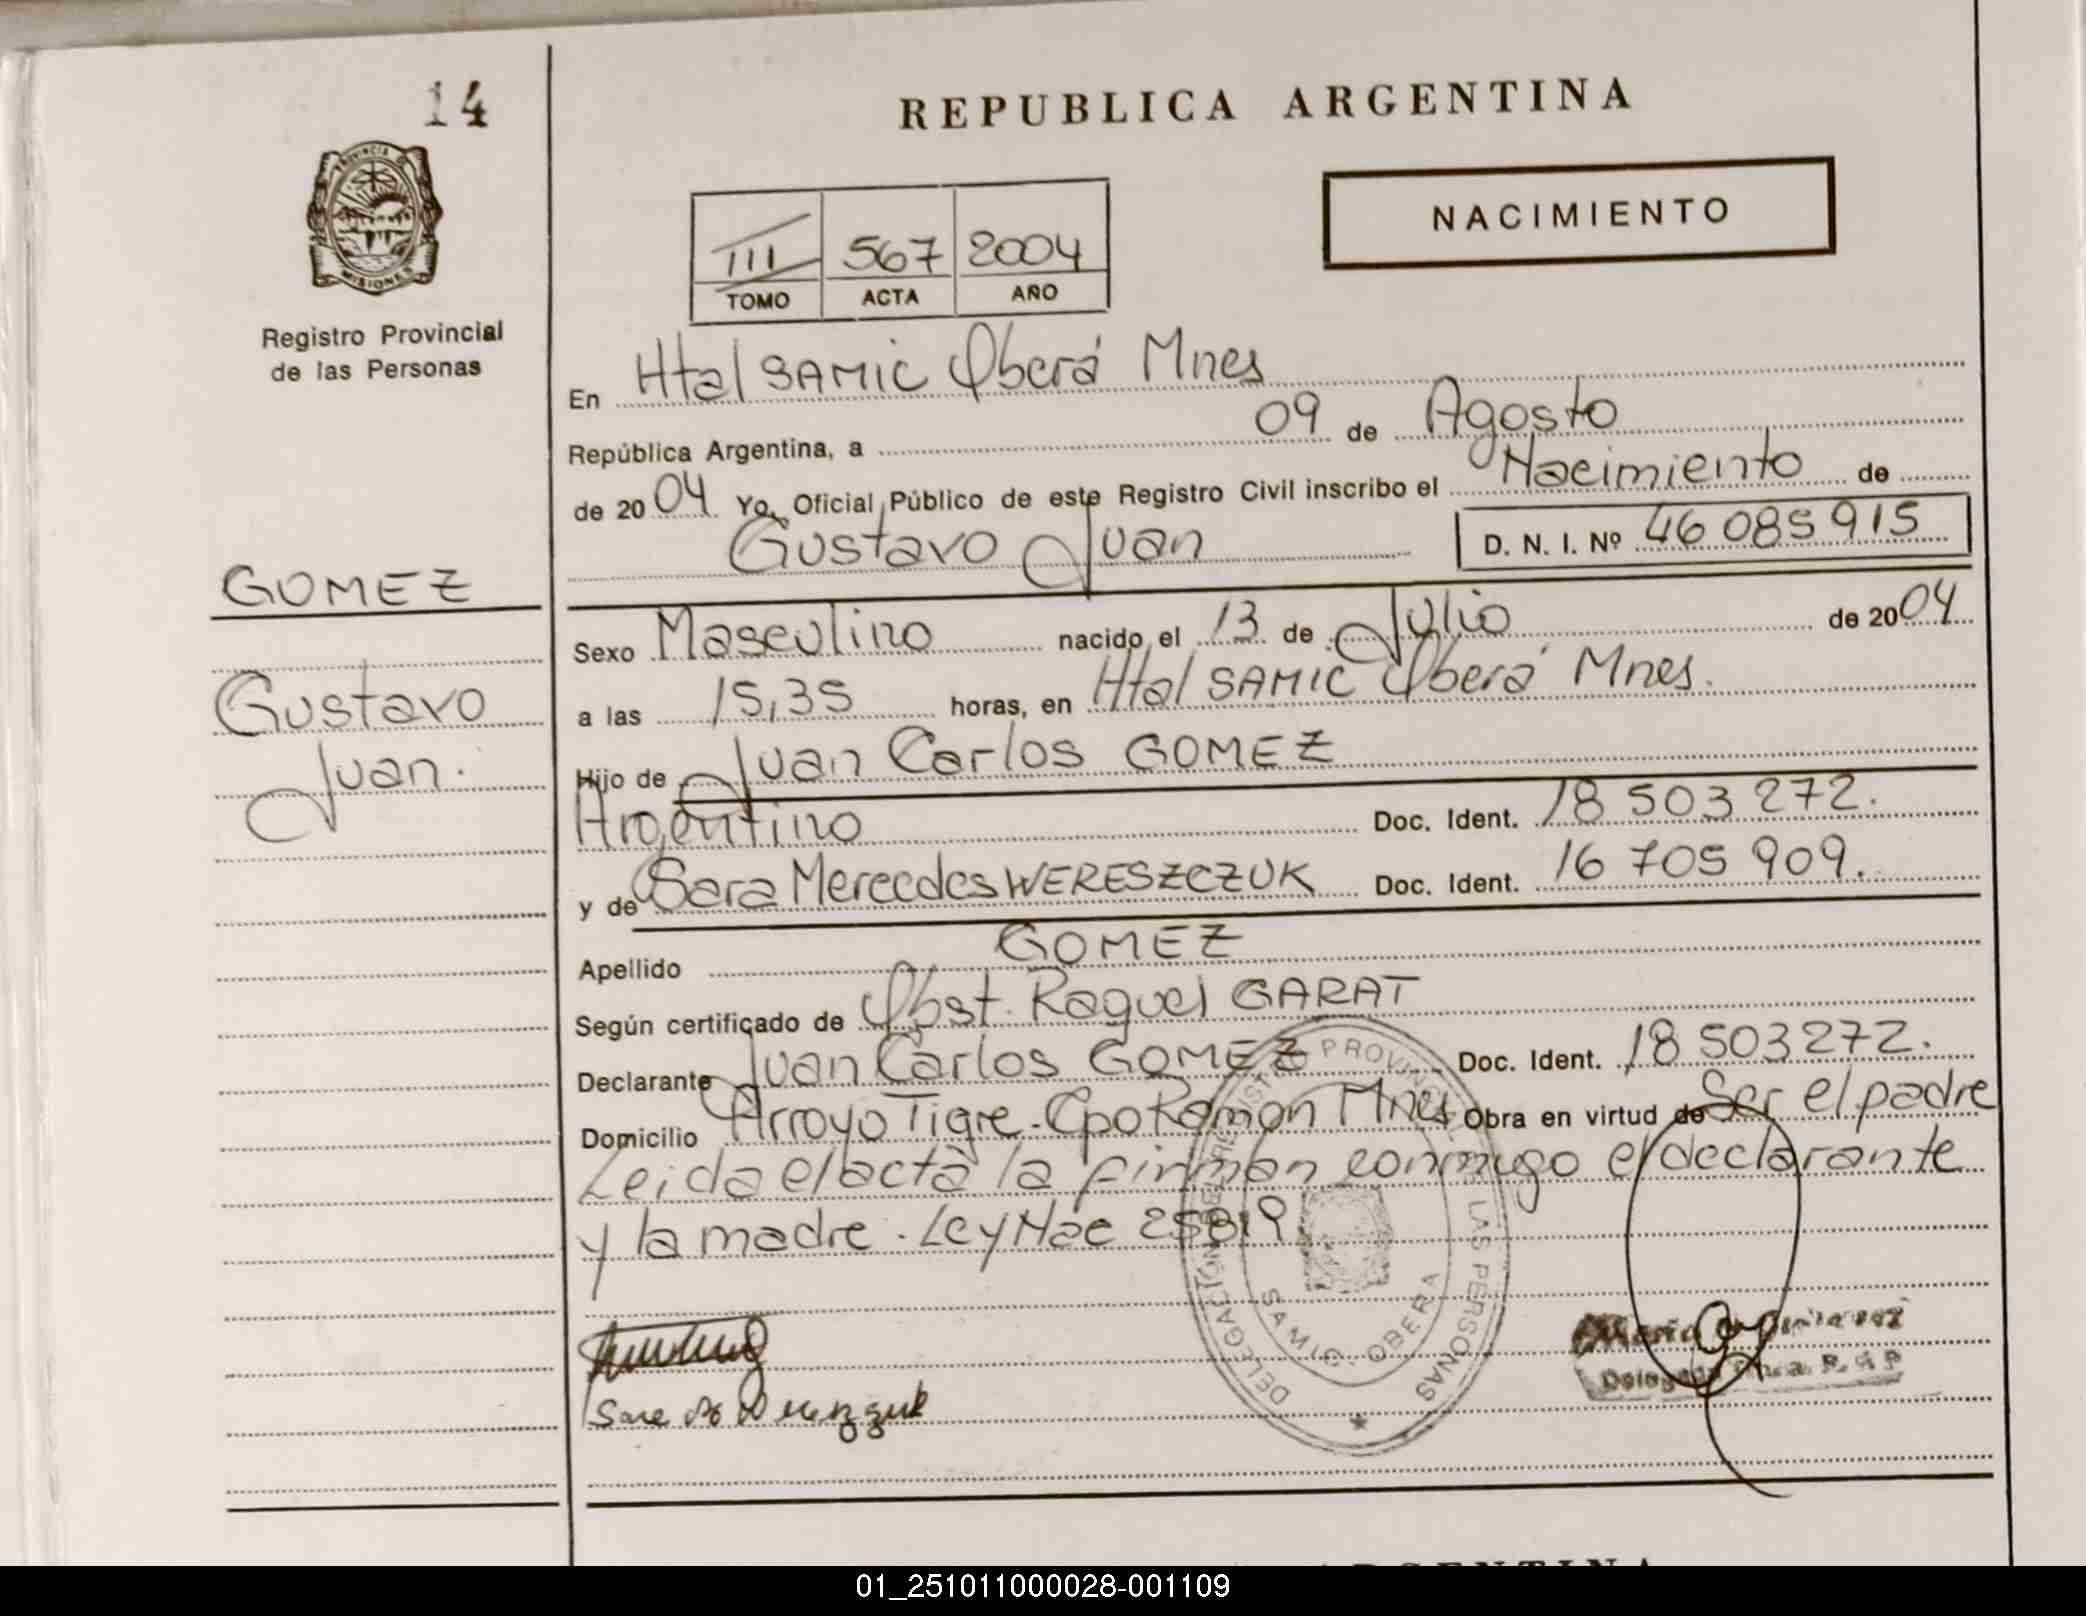 14
REPUBLICA ARGENTINA
PROVINCIA DE
MISIONES
Registro Provincial
de las Personas
III 567 2004
TOMO ACTA AÑO
NACIMIENTO
En Htal SAMIC Oberá Mnes
República Argentina, a 09 de Agosto
de 20 04 Yo, Oficial Público de este Registro Civil inscribo el Nacimiento de
Gustavo Juan D. N. I. Nº 46 085 915
GOMEZ
Gustavo
Juan.
Sexo Masculino nacido el 13 de Julio de 20 04
a las 15,35 horas, en Htal SAMIC Oberá Mnes.
Hijo de Juan Carlos GOMEZ
Argentino Doc. Ident. 18 503 272.
y de Sara Mercedes WERESZCZUK Doc. Ident. 16 705 909.
Apellido GOMEZ
Según certificado de Obst. Raquel GARAT
Declarante Juan Carlos GOMEZ Doc. Ident. 18 503272.
Domicilio Arroyo Tigre - Cpo Ramon Mnes Obra en virtud de Ser el padre
Leida el acta la firman conmigo el declarante
y la madre. Ley Nac 25819.
DELEGACION DEL REGISTRO PROVINCIAL DE LAS PERSONAS
SAMIC. OBERA
01_251011000028-001109